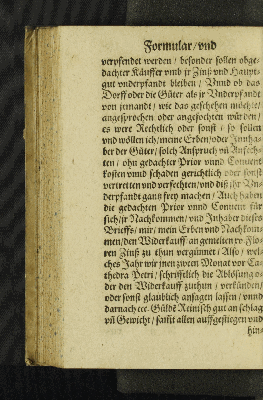 Formular/ vnd
verpfendet werden / besonder sollen obge-
dachter Käuffer vmb jr Zinß vnd Haupt-
gut vnderpfandt bleiben / Vnnd ob das
Dorff oder die Güter als jr Vnderpfandt
von jemandt / wie das geschehen möchte /
angesprochen oder angefochten würden /
es were Rechtlich oder sonst / so sollen
vnd wöllen ich / meine Erben / oder Innha-
ber der Güter / solch Anspruch vñ Anfech-
ten / ohn gedachter Prior vnnd Conuent
kosten vnnd schaden gerichtlich oder sonst
vertretten vnd verfechten / vnd diß ihr Vn-
derpfandt gantz frey machen / Auch haben
die gedachten Prior vnnd Conuent für
sich / jr Nachkommen / vnd Inhaber dieses
Brieffs / mir / mein Erben vnd Nachkom-
men / den Widerkauff an gemelten rv. Flo-
ren Zinß zu thun vergünnet / Also / wel-
ches Jahr wir jnen zween Monat vor Ca-
thedra Petri / schrifftlich die Ablösung o-
der den Widerkauff zuthun / verkünden /
oder sonst glaublich ansagen lassen / vnnd
darnach ccc. Güldẽ Reinisch gut an schlag
vñ Gewicht / sampt allen auffgestiegen vnd
hin-